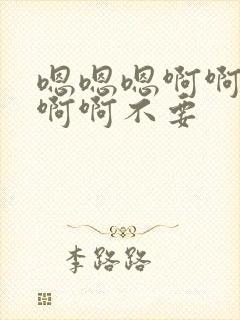 嗯嗯嗯啊啊
啊啊不要
李路路